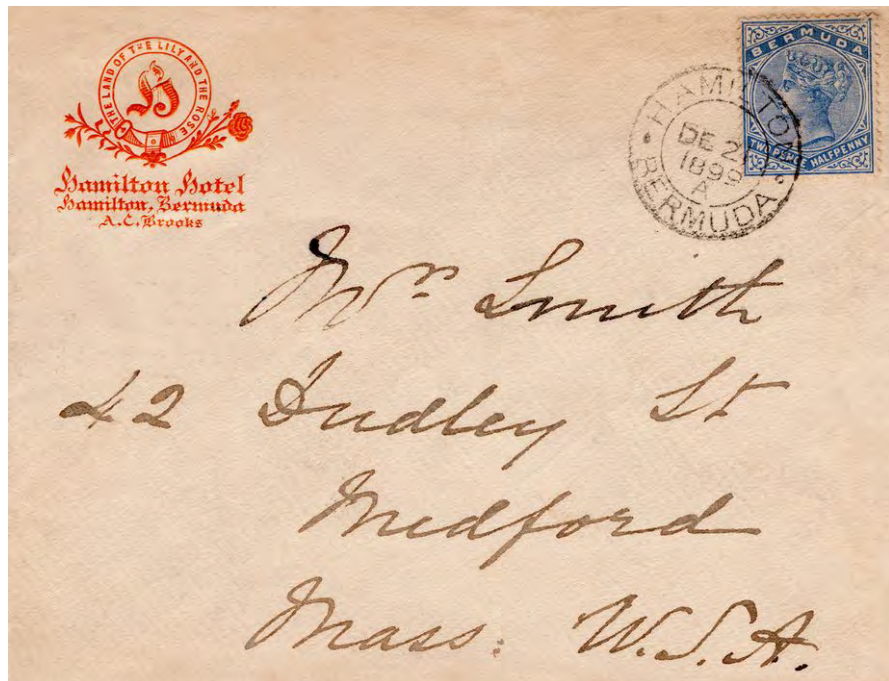 THE LAND OF THE LILY AND THE ROSE
H
Hamilton Hotel
Hamilton, Bermuda
A.C. Brooks
BERMUDA
TWO PENCE HALFPENNY
HAMILTON
DE 2
1899
A
BERMUDA
Mr Smith
42 Dudley St
Medford
Mass: U.S.A.